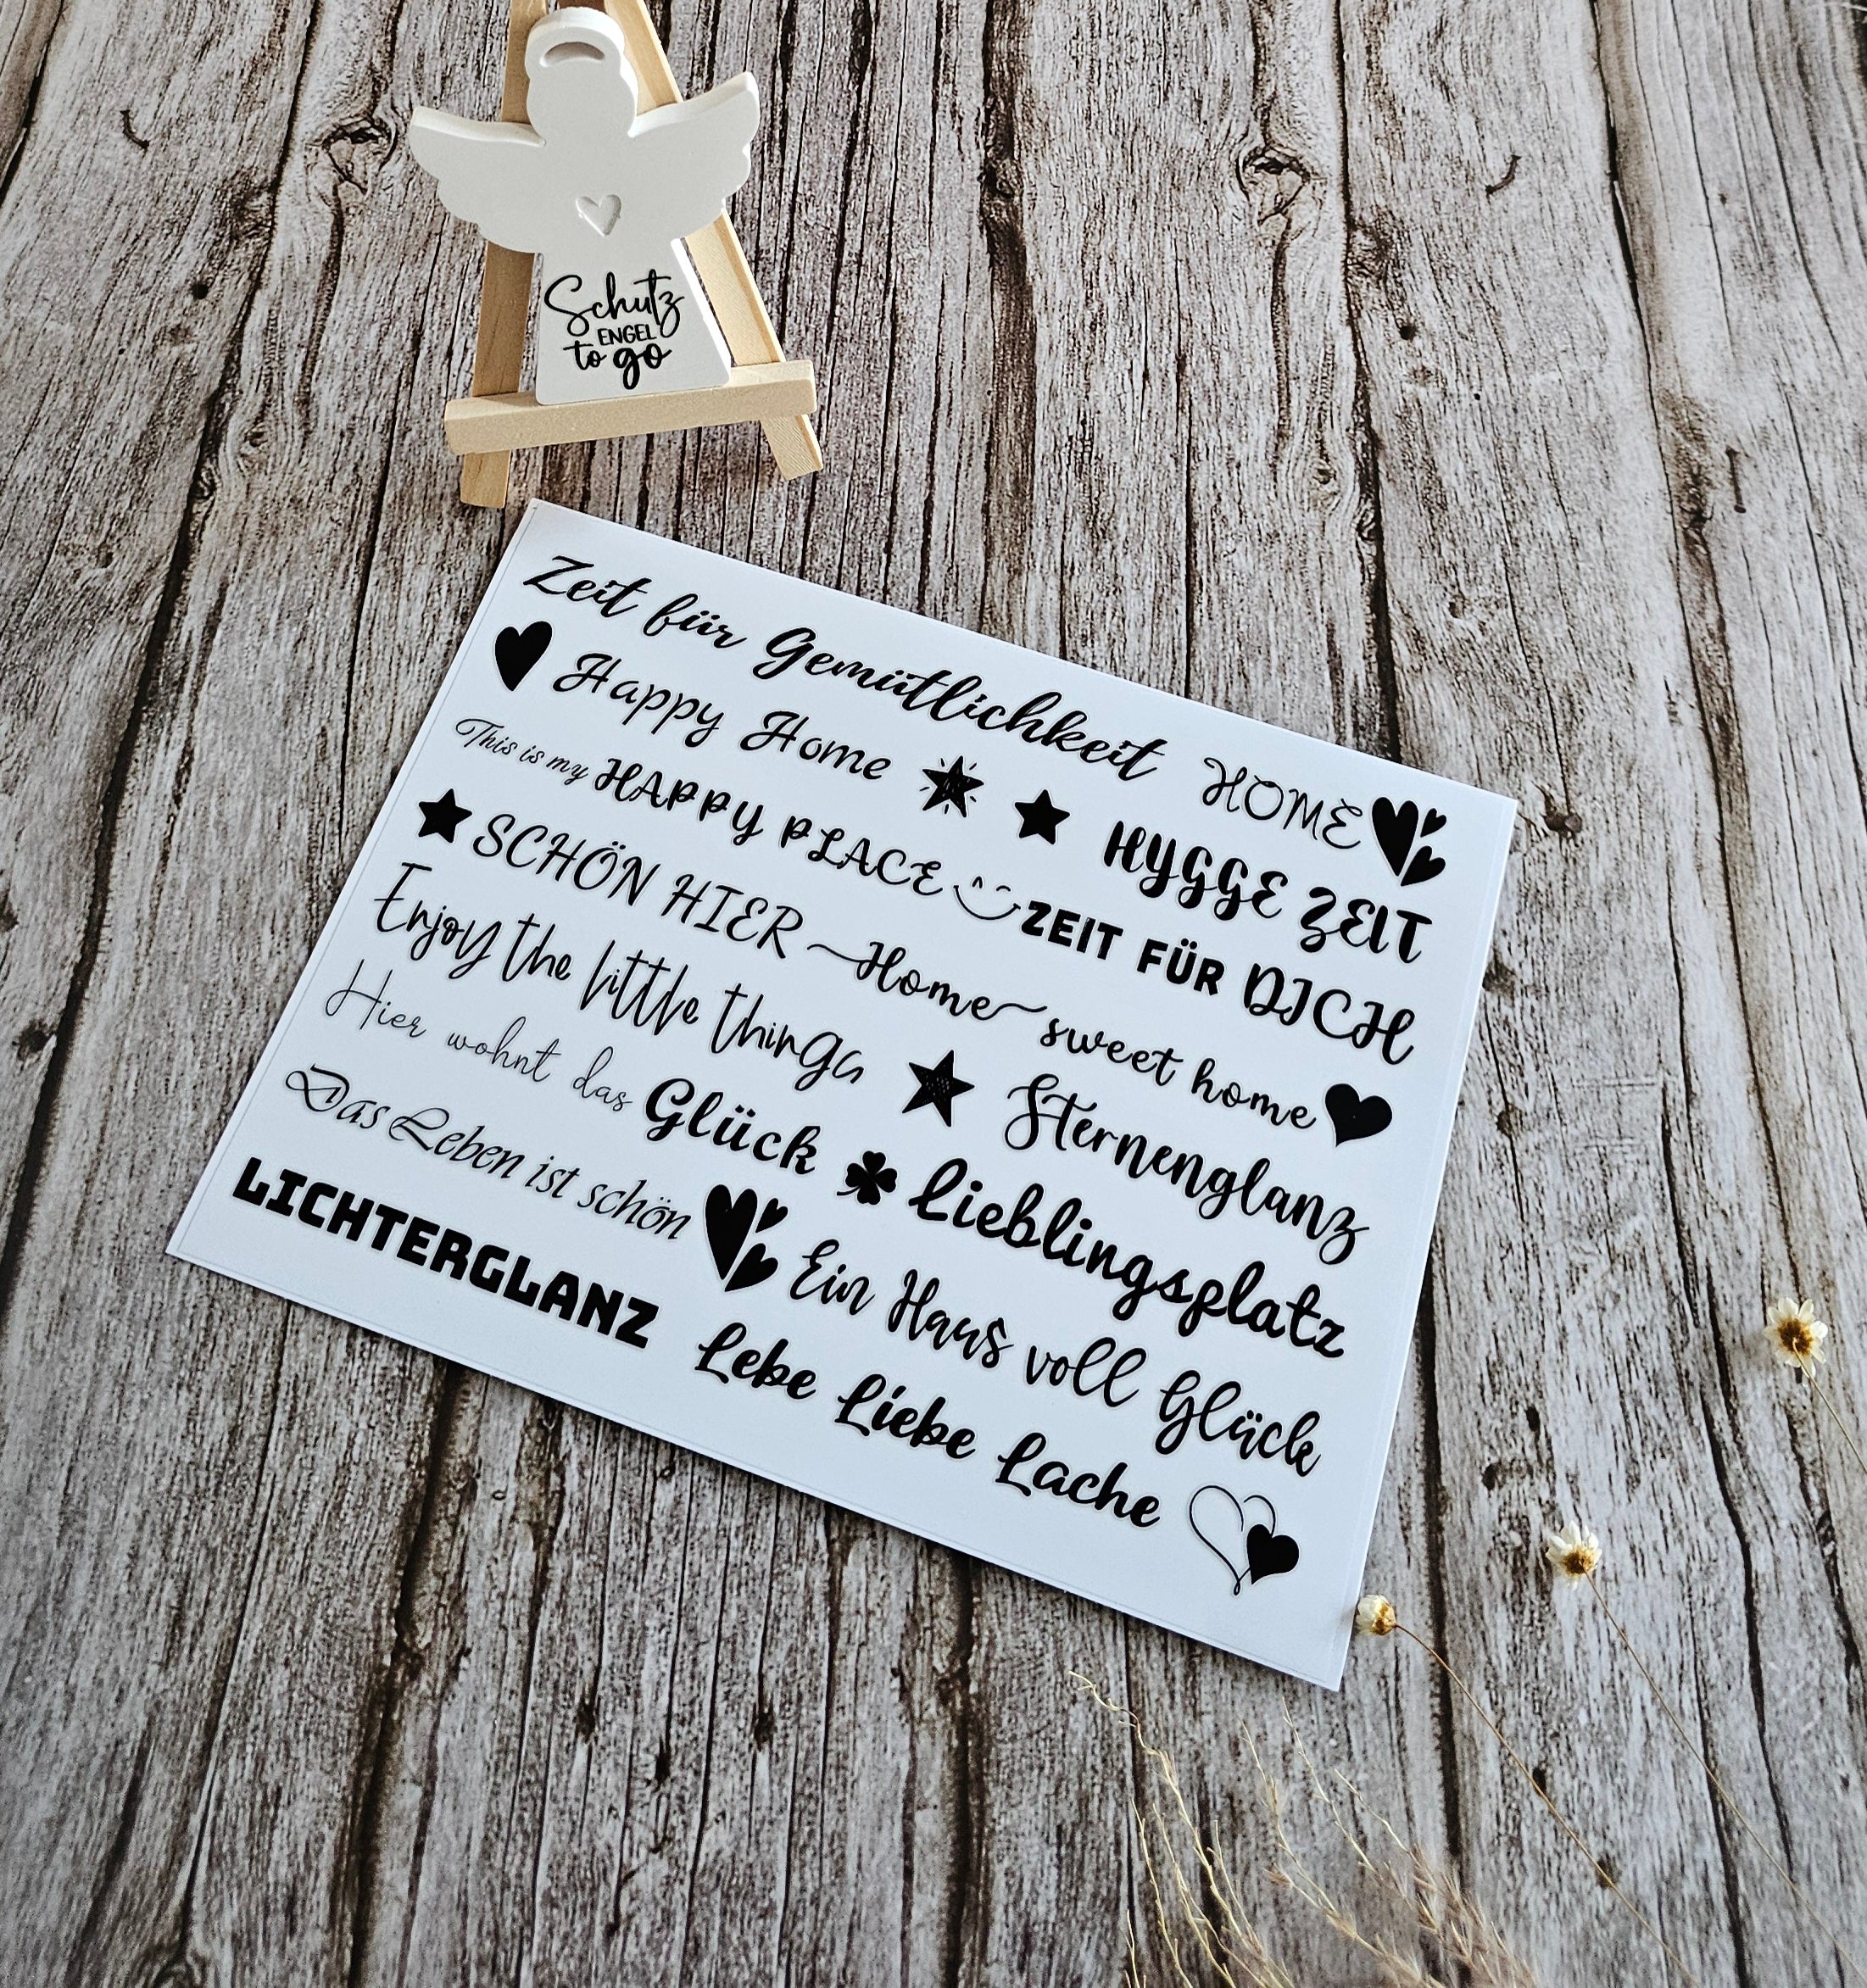 Schutz
ENGEL
to go
Zeit für Gemütlichkeit
HOME
Happy Home
HYGGE ZEIT
This is my HAPPY PLACE
ZEIT FÜR DICH
SCHÖN HIER
Home sweet home
Enjoy the little things
Sternenglanz
Hier wohnt das Glück
Lieblingsplatz
Das Leben ist schön
Ein Haus voll Glück
LICHTERGLANZ
Lebe Liebe Lache